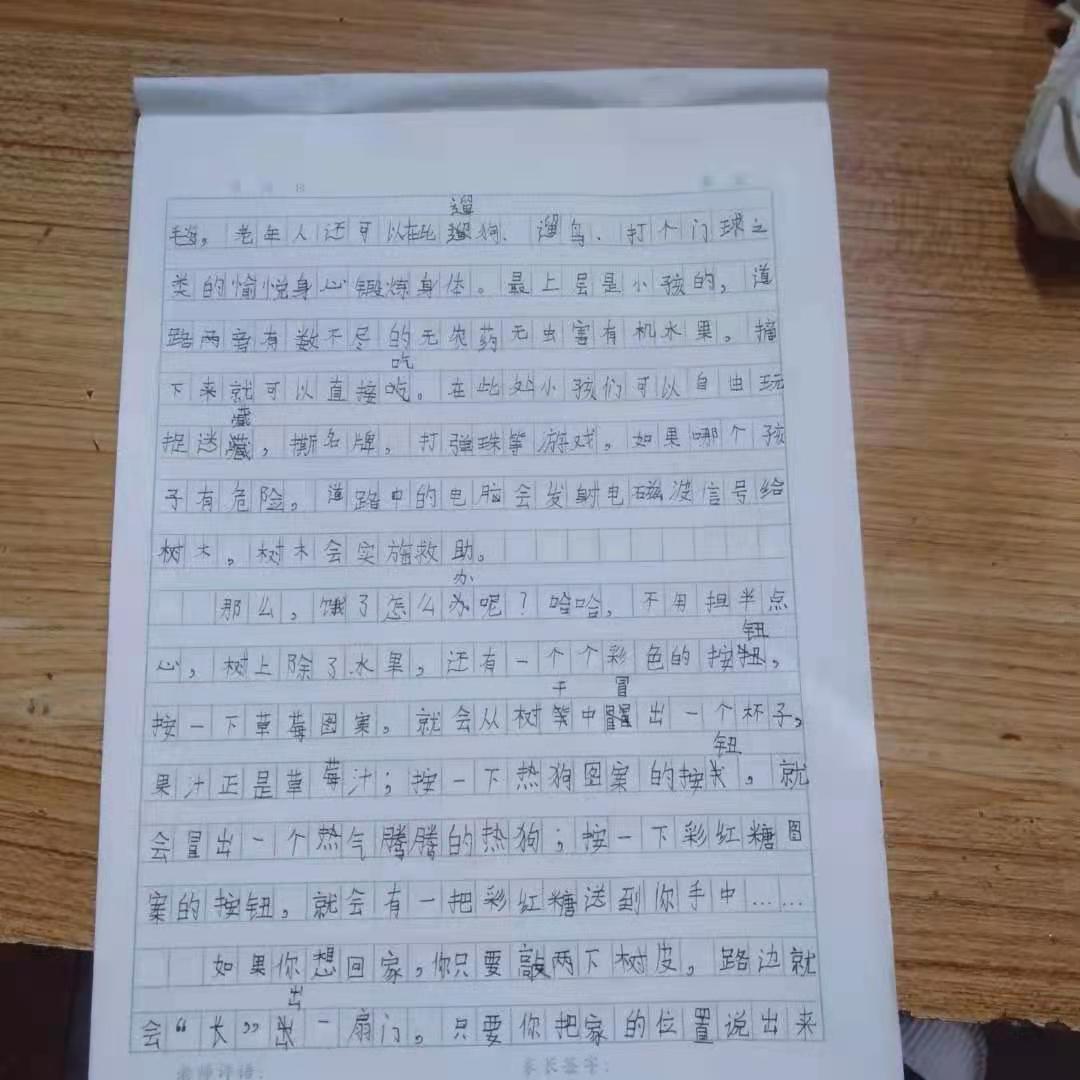 毽，老年人还可以在此遛狗、遛鸟、打个门球之
类的愉悦身心锻炼身体。最上层是小孩的，道
路两旁有数不尽的无农药无虫害有机水果。摘
下来就可以直接吃。在此处小孩们可以自由玩
捉迷藏，撕名牌，打弹珠等游戏，如果哪个孩
子有危险，道路中的电脑会发射电磁波信号给
树木，树木会实施救助。
那么，饿了怎么办呢？哈哈，不用担半点
心，树上除了水果，还有一个个彩色的按钮，
按一下草莓图案，就会从树干中冒出一个杯子，
果汁正是草莓汁；按一下热狗图案的按钮，就
会冒出一个热气腾腾的热狗；按一下彩虹糖图
案的按钮，就会有一把彩红糖送到你手中……
如果你想回家，你只要敲两下树皮，路边就
会“长”出一扇门。只要你把家的位置说出来
老师评语：
家长签字：